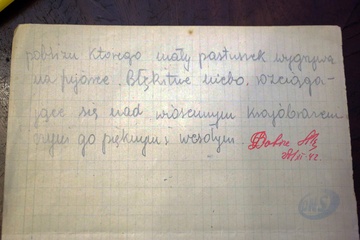 pobliżu którego mały pastuszek wygrywa
na fujarce. Błękitne niebo, rozciąga-
jące się nad wiosennym krajobrazem
czyni go pięknym i wesołym. Dobre